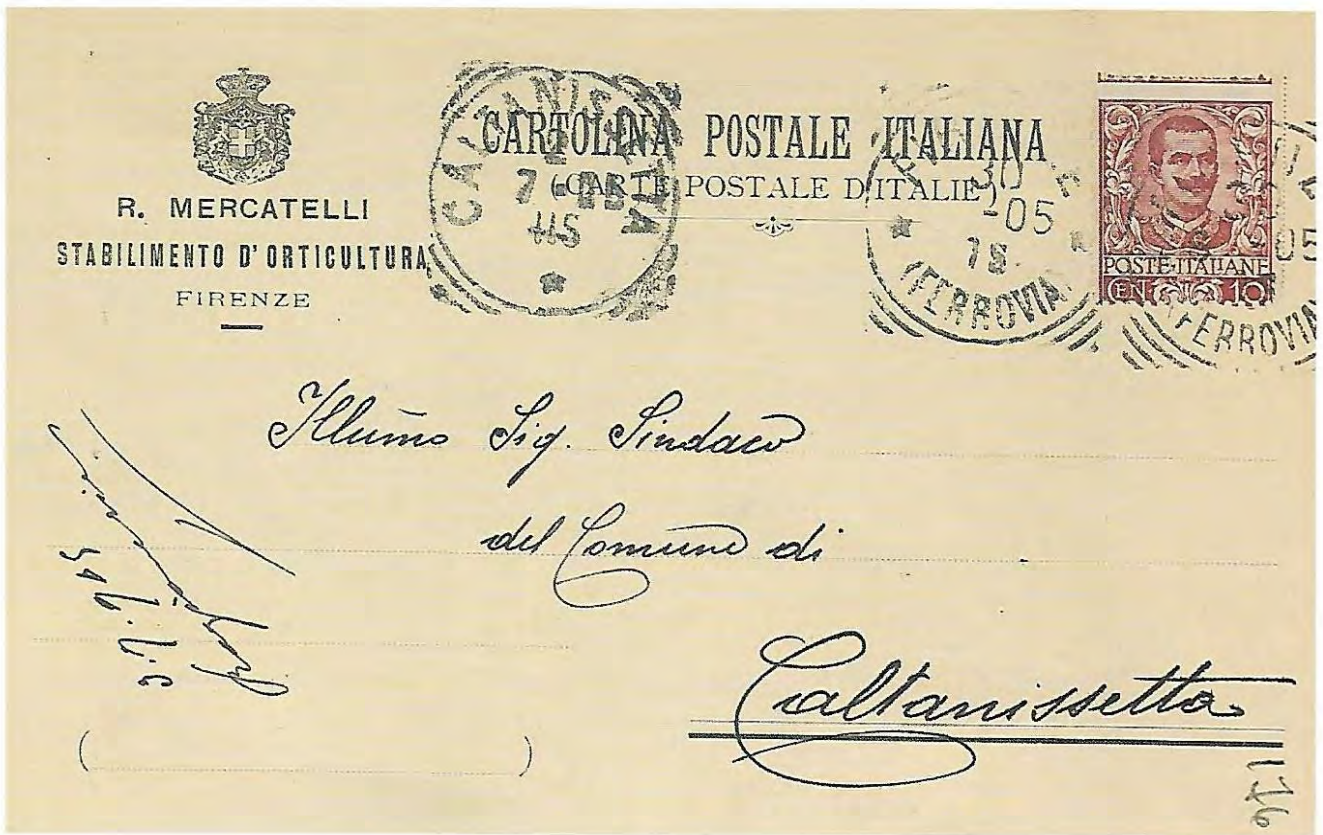 R. MERCATELLI
STABILIMENTO D'ORTICULTURA
FIRENZE
CARTOLINA POSTALE ITALIANA
(CARTE POSTALE D'ITALIE)
CALTANISSETTA
7-05
30
-05
(FERROVIA)
05
(FERROVIA
POSTE·ITALIANE
CEN. 10
Illũmo Sig. Sindaco
del Comune di
Caltanissetta